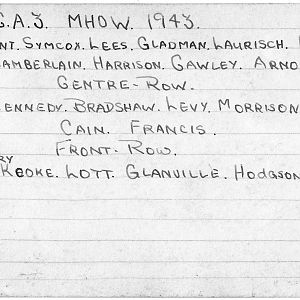 C.A.3 MHOW. 1943.
NT. SYMCOX. LEES. GLADMAN. LAURISCH.
AMBERLAIN. HARRISON. GAWLEY. ARNO
CENTRE-ROW.
ENNEDY. BRADSHAW. LEVY. MORRISON
CAIN. FRANCIS.
FRONT-ROW.
RY
KEOKE. LOTT. GLANVILLE. HODGSON